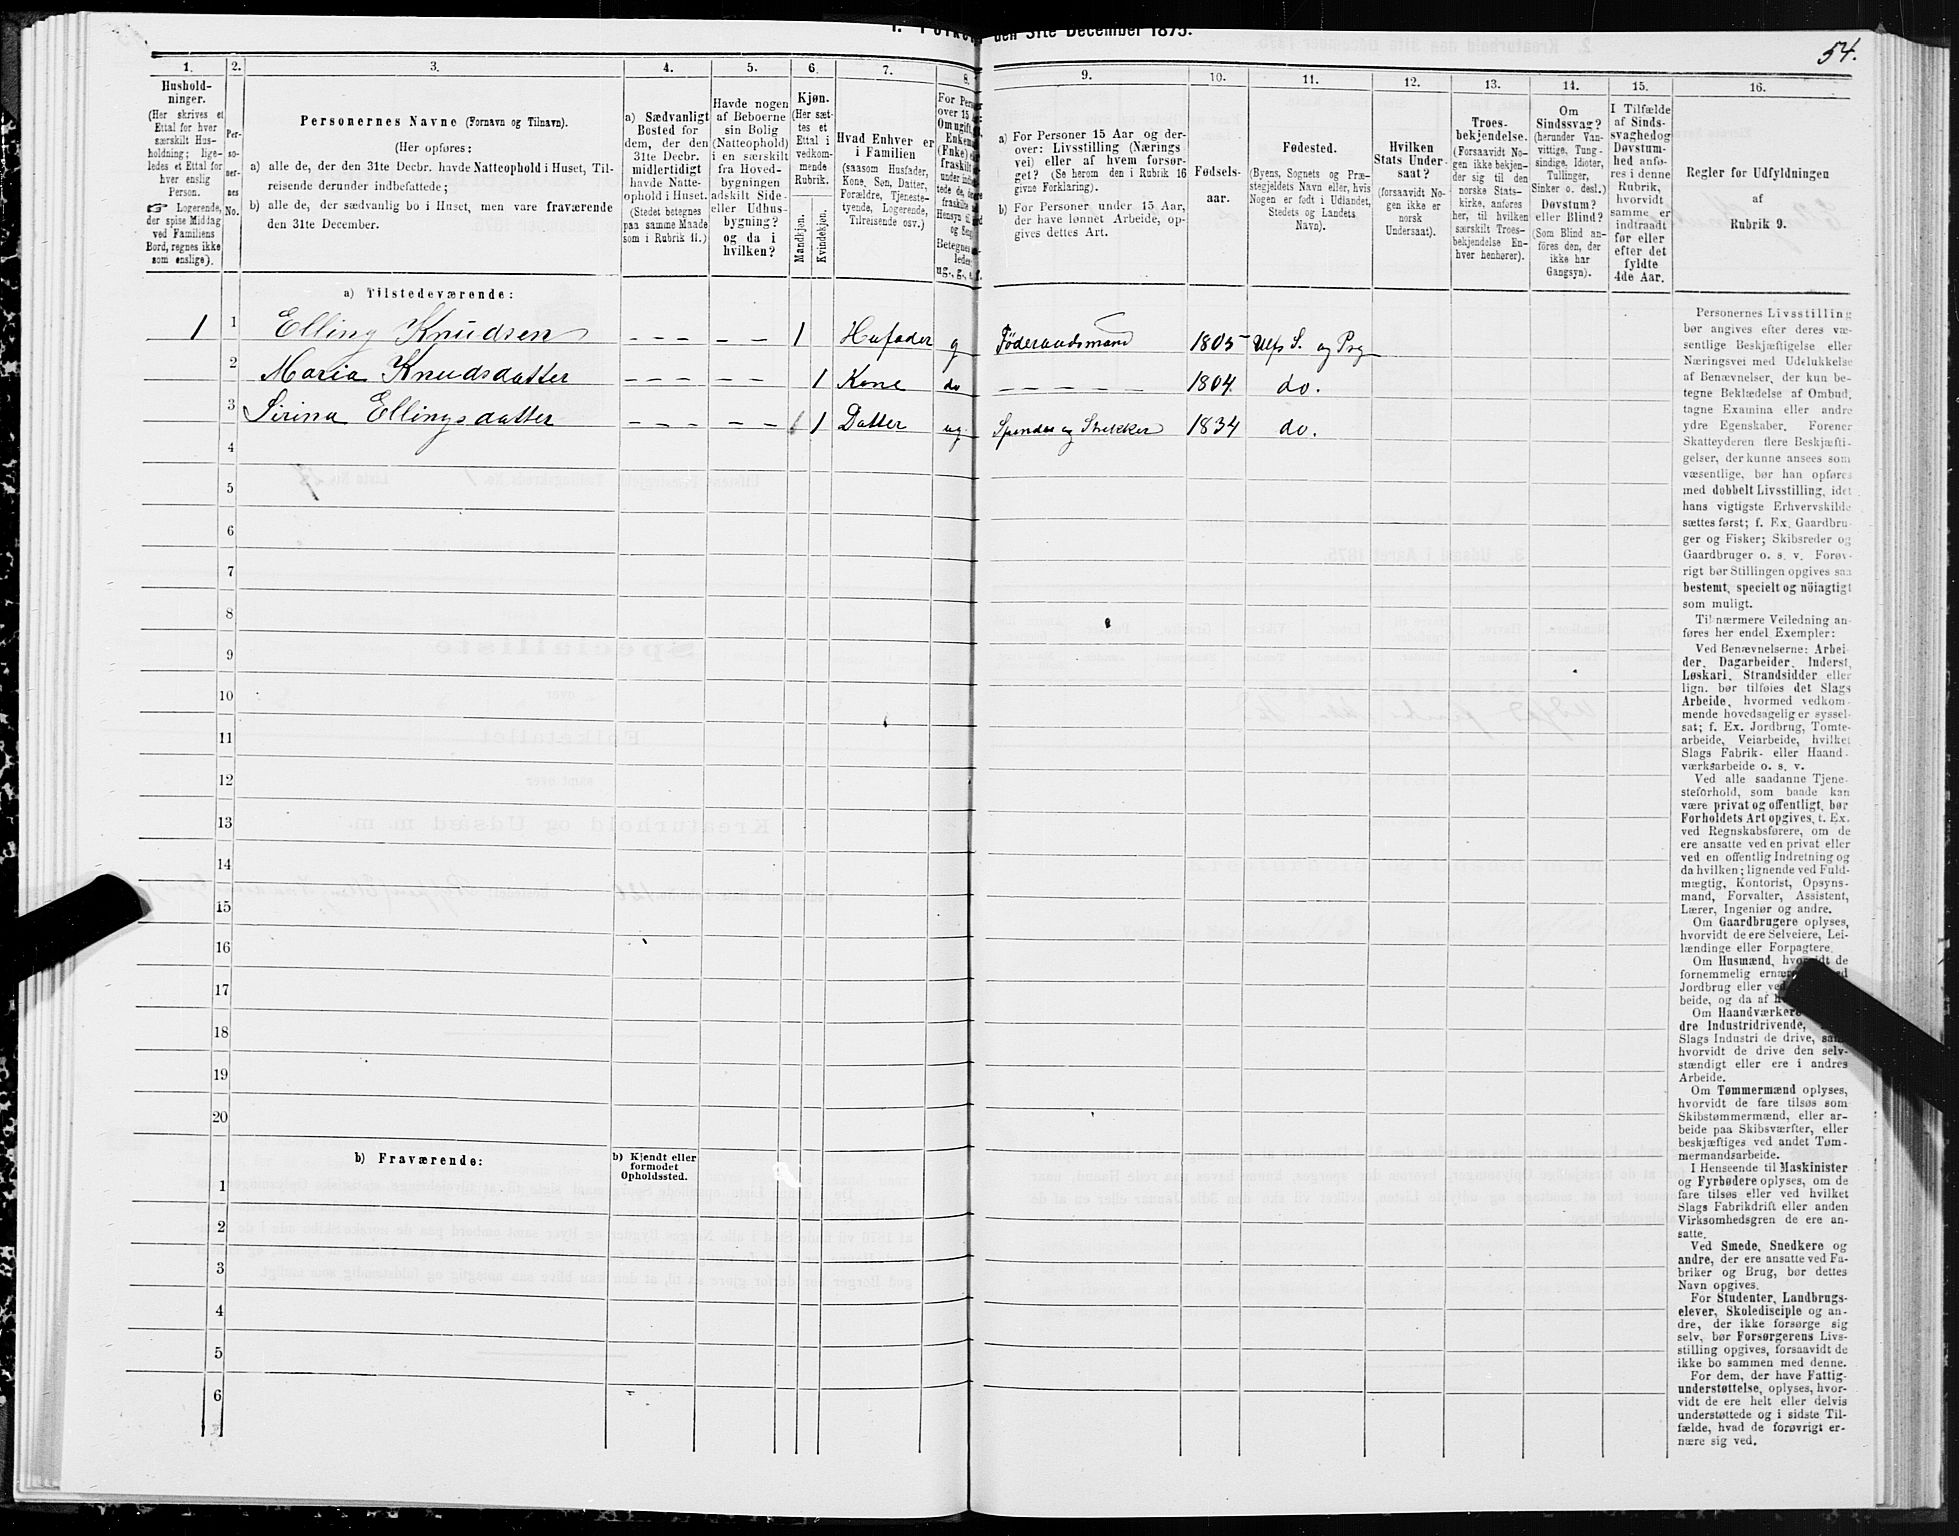 den 31te December 1875.
54.
1. 2. 3. 4. 5. 6. 7. 8. 9. 10. 11. 12. 13. 14. 15. 16.
Hushold-
ninger.
(Her skrives et
Ettal for hver
særskilt Hus-
holdning; lige-
ledes et Ettal for
hver enslig
Person.
☞ Logerende,
der spise Middag
ved Familiens
Bord, regnes ikke
som enslige).
Per-
so-
ner-
nes
No.
Personernes Navne (Fornavn og Tilnavn).
(Her opføres:
a) alle de, der den 31te Decbr. havde Natteophold i Huset, Til-
reisende derunder indbefattede;
b) alle de, der sædvanlig bo i Huset, men vare fraværende
den 31te December.
a) Sædvanligt
Bosted for
dem, der den
31te Decbr.
midlertidigt
havde Natte-
ophold i Huset.
(Stedet betegnes
paa samme Maade
som i Rubrik 11.)
Havde nogen
af Beboerne
sin Bolig
(Natteophold)
i en særskilt
fra Hoved-
bygningen
adskilt Side-
eller Udhus-
bygning?
og da i
hvilken?
Kjøn.
(Her sæt-
tes et
Ettal i
vedkom-
mende
Rubrik.
Mandkjøn.
Kvindekjøn.
Hvad Enhver er
i Familien
(saasom Husfader,
Kone, Søn, Datter,
Forældre, Tjeneste-
tyende, Logerende,
Tilreisende osv.)
a) For Personer 15 Aar og der-
over: Livsstilling (Nærings
vei) eller af hvem forsør-
get? (Se herom den i Rubrik 16
givne Forklaring).
b) For Personer under 15 Aar,
der have lønnet Arbeide, op-
gives dettes Art.
Fødsels-
aar.
Fødested.
(Byens, Sognets og Præ-
stegjeldets Navn eller, hvis
Nogen er født i Udlandet,
Stedets og Landets
Navn).
Hvilken
Stats Under-
saat?
(forsaavidt No-
gen ikke er
norsk
Undersaat).
Troes-
bekjendelse.
(Forsaavidt No-
gen ikke bekjen-
der sig til den
norske Stats-
kirke, anføres
her, til hvilken
særskilt Troes-
bekjendelse En-
hver henhører).
Om
Sindssvag?
(herunder Van-
vittige, Tung-
sindige, Idioter,
Tullinger,
Sinker o. desl.)
Døvstum?
eller Blind?
(Som Blind an-
føres den, der
ikke har
Gangsyn).
I Tilfælde
af Sinds-
svaghed og
Døvstum-
hed anfø-
res i denne
Rubrik,
hvorvidt
samme er
indtraadt
før eller
efter det
fyldte
4de Aar.
Regler for Udfyldningen
af
Rubrik 9.
a) Tilstedeværende:
1 1 Elling Knudsen – – – – – 1 Husfader g Föderaadsmand 1805 Ulfs S. og Prg
2 Maria Knudsdatter – – – – – 1 Kone do – – – – – – 1804. do.
3 Sirina Ellingsdatter – – – – – 1 Datter ug. Spinder og Strikker 1834 do.
4
5
6
7
8
9
10
11
12
13
14
15
16
17
18
19
20
b) Fraværende:
b) Kjendt eller
formodet
Opholdssted.
1
2
3
4
5
6
Personernes Livsstilling
bør angives efter deres væ-
sentlige Beskjæftigelse eller
Næringsvei med Udelukkelse
af Benævnelser, der kun be-
tegne Beklædelse af Ombud,
tagne Examina eller andre
ydre Egenskaber. Forener
Skatteyderen flere Beskjæfti-
gelser, der kunne ansees som
væsentlige, bør han opføres
med dobbelt Livsstilling, idet
hans vigtigste Erhvervskilde
sættes først; f. Ex. Gaardbru-
ger og Fisker; Skibsreder og
Gaardbruger o. s. v. Forøv-
rigt bør Stillingen opgives saa
bestemt, specielt og nöiagtigt
som muligt.
Til nærmere Veiledning an-
føres her endel Exempler:
Ved Benævnelserne: Arbei-
der, Dagarbeider, Inderst,
Løskari, Strandsidder eller
lign. bør tilføies det Slags
Arbeide, hvormed vedkom-
mende hovedsagelig er syssel-
sat; f. Ex. Jordbrug, Tomte-
arbeide, Veiarbeide, hvilket
Slags Fabrik- eller Haand-
værksarbeide o. s. v.
Ved alle saadanne Tjene-
steforhold, som baade kan
være privat og offentligt, bør
Forholdets Art opgives, t. Ex.
ved Regnskabsførere, om de
ere ansatte ved en privat eller
ved en offentlig Indretning og
da hvilken; lignende ved Fuld-
mægtig, Kontorist, Opsyns-
mand, Forvalter, Assistent,
Lærer, Ingeniør og andre.
Om Gaardbrugere oplyses,
hvorvidt de ere Selveiere, Lei-
lændinge eller Forpagtere.
Om Husmænd, hvorvidt de
fornemmelig ernære
Jordbrug eller ved
beide, og da af
Om Haandværkere
dre Industridrivende,
Slags Industri de drive, samt
hvorvidt de drive den selv-
stændigt eller ere i andres
Arbeide.
Om Tømmermænd oplyses,
hvorvidt de fare tilsøs som
Skibstømmermænd, eller ar-
beide paa Skibsværfter, eller
beskjæftiges ved andet Tøm-
mermandsarbeide.
I Henseende til Maskinister
og Fyrbødere oplyses, om de
fare tilsøs eller ved hvilket
Slags Fabrikdrift eller anden
Virksomhedsgren de ere an-
satte.
Ved Smede, Snedkere og
andre, der ere ansatte ved Fa-
briker og Brug, bør dettes
Navn opgives.
For Studenter, Landbrugs-
elever, Skoledisciple og an-
dre, der ikke forsørge sig
selv, bør Forsørgerens Livs-
stilling opgives, forsaavidt de
ikke bo sammen med denne.
For dem, der have Fattig-
understøttelse, oplyses, hvor-
vidt de ere helt eller delvis
understøttede og i sidste Til-
fælde, hvad de forøvrigt er-
nære sig ved.